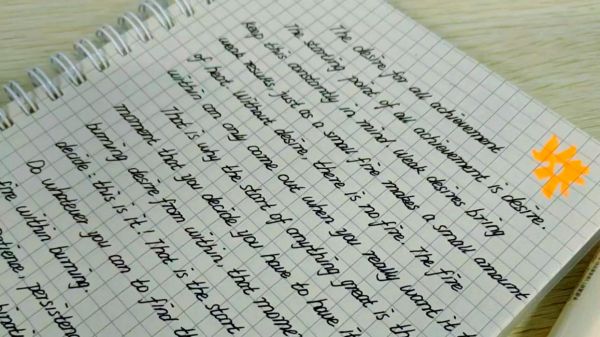 The desire for all achievement
The starting point of all achievement is desire.
keep this constantly in mind weak desires bring
weak results, just as a small fire makes a small amount
of heat. without desire, there is no fire. The fire
within can only come out when you really want it
That is why the start of anything great is
moment that you decide you have to have it
burning desire from within, that
decide: this is it! That is the start
Do whatever you can to find
fire within burning.